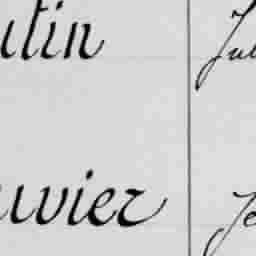 utin Jul
uvier Je